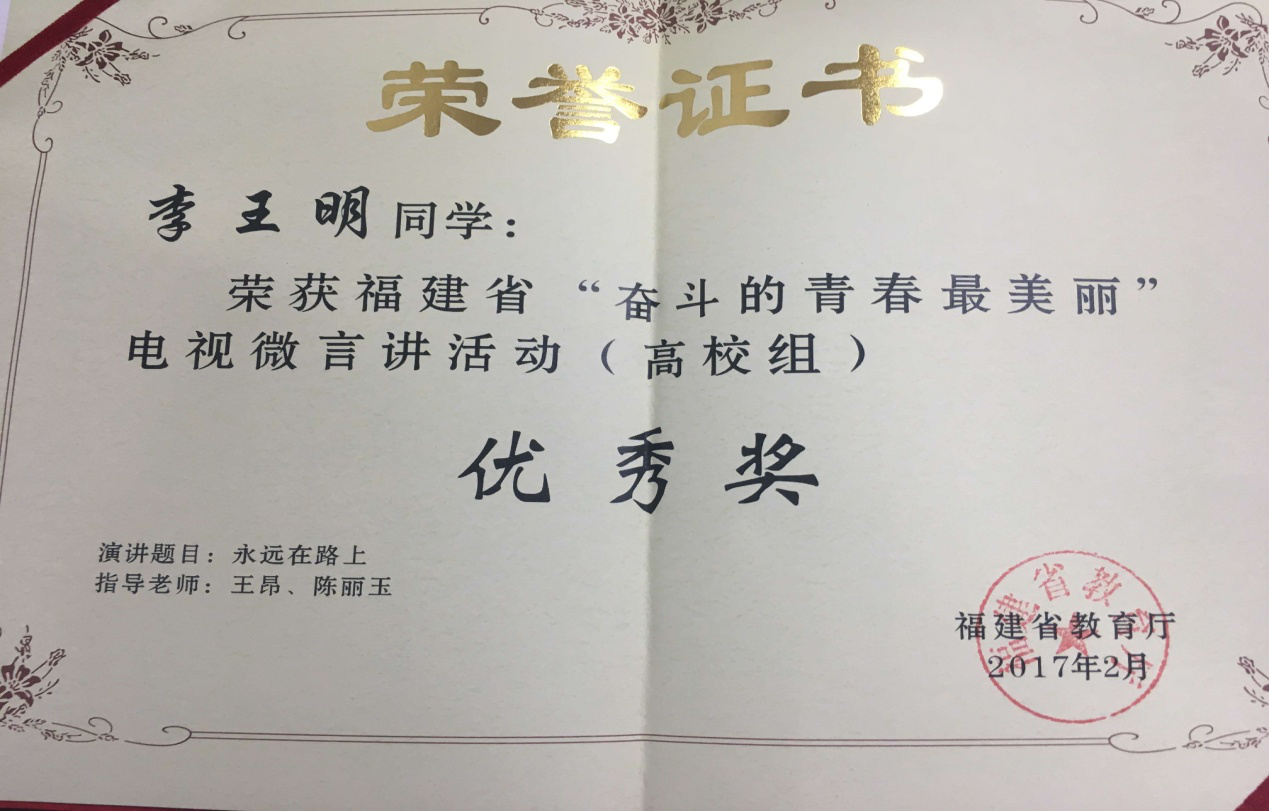 荣誉证书
李王明同学：
荣获福建省“奋斗的青春最美丽”
电视微言讲活动（高校组）
优秀奖
演讲题目：永远在路上
指导老师：王昂、陈丽玉
福建省教育厅
2017年2月
福建省教育厅